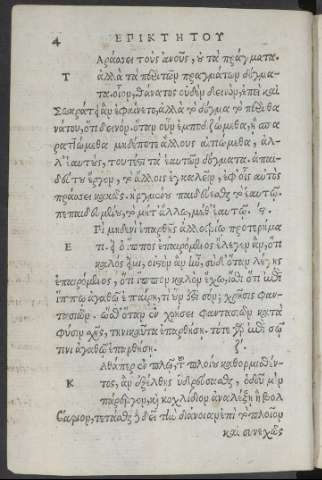 4 ΕΠΙΚΤΗΤΟΥ
Αράσσει τοὺς ἀνους, ὀυ τὰ πράγματα.
Τ ἀλλὰ τὰ περὶ τῶν πραγμάτων δόγμα-
τα. οἷον, θάνατος οὐδὲν δεινὸν, ἐπεὶ καὶ
Σωκράτῃ ἂν ἐφαίνετο, ἀλλὰ τὸ δόγμα τὸ περὶ θα
νάτου, ὅτι δεινὸν. ὅταν οὖν ἐμποδιζώμεθα, ἢ ταρα
ραττώμεθα μηδέποτε ἄλλους αἰτιώμεθα, ἀλ-
λ' ἑαυτοὺς, τουτέστι τὰ ἑαυτῶν δόγματα. ἀπαι-
δεύτου ἔργον, τὸ ἄλλοις ἐγκαλεῖν, ἐφ' οἷς αυτὸς
πράσσει κακῶς. ἠργμένου παιδεύεσθαι τὸ ἑαυτῷ.
πεπαιδευμένου, τὸ μήτ' ἄλλῳ, μήθ' ἑαυτῷ. ς'.
Πὶ μηδενὶ ἐπαρθῇς ἀλλοτρίῳ προτερήμα
Ε τι. εἰ ὁ ἵππος ἐπαιρόμενος ἔλεγεν ἂν, ὅτι
καλός εἰμι, οἰστὸν ἂν ἦν, σὺ δὲ ὅταν λέγῃς
ἐπαιρόμενος, ὅτι ἵππον καλὸν ἔχω, ἴσθι ὅτι ἐπὶ
ἵππῳ ἀγαθῷ ἐπαίρῃ, τί οὖν ἐστι σὸν; χρῆσις φαν-
τασιῶν. ὥσθ' ὅταν ἐν χρήσει φαντασιῶν κατὰ
φύσιν σχῇς, τηνικαῦτα ἐπάρθητι. τότε γὰρ ἐπὶ σῷ
τινι ἀγαθῷ ἐπαρθήσῃ. ζ'.
Αθάπερ ἐν πλῷ, τοῦ πλοίου καθορμισθέν-
Κ τος, ἂν ἐξέλθῃς ὑδρεύσασθαι, ὁδοῦ μὲν
πάρεργον, καὶ κοχλίδιον ἀναλέξῃ ἢ βολ
βάριον, τετάσθαι δὲ δεῖ τὴν διάνοιαν ἐπὶ τὸ πλοῖον
καὶ συνεχῶς